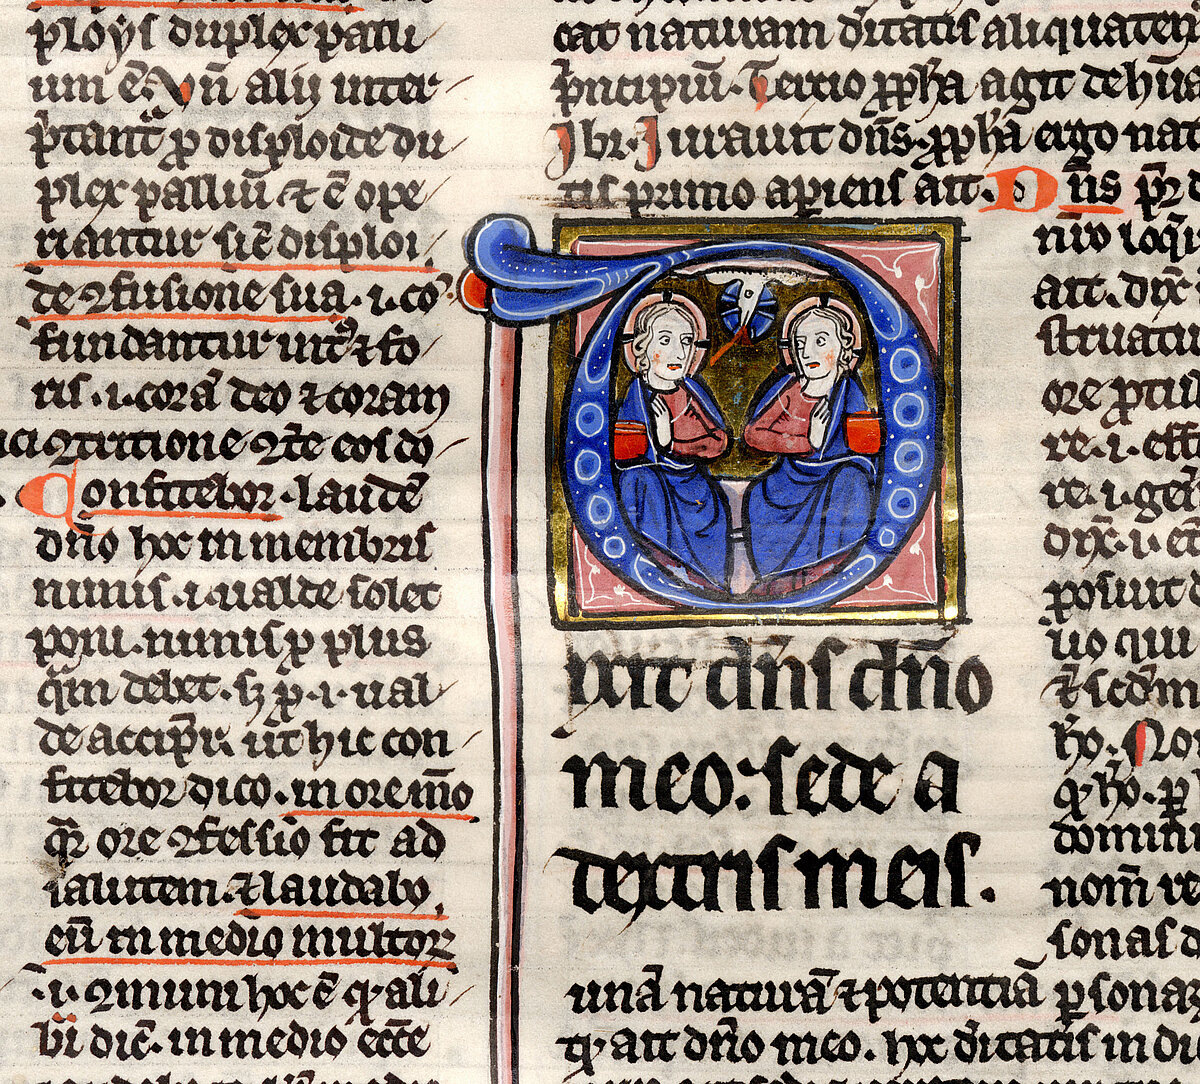 ploys duplex palli
um ē. Vn̄ alii inter
p̄tant᷑ ꝑ diploide du
plex palliū ⁊ ē ope
riantur sič disploi
de ꝯfusione sua .i. co
fundantur int᷑ ⁊ fo
ris .i. corā deo ⁊ coram
ꝯtritione ꝯr̄e eos do
Confitebor . laudē
dño hoc in membris
nimis .i. ualde solet
poni . nimis ꝑ plus
q̄m debet . sꝫ ꝑ .i. ual
de accip̄r. ut hic con
fitebor dico . in ore m̄o
qr̄ ore ꝯfessio fit ad
salutem . ⁊ laudabo
eū in medio multoꝝ
.i. ꝯmuni hoc ē qꝭ ali
bi dič. in medio ecc̄e
cat naturam d̄itatis aliquaten
p̄ncipiū. Tertio ꝓph̄a agit de hūa
ibi. Iurauit dñs. ꝓph̄a ergo nat
tis primo aperiens ait. Dñs pr̄
Dixit dñs dño
meo: sede a
dextris meis.
unā naturā ⁊ potentiā
qꝭ ait dño meo. hoc d̄itatis in di
nīo loqr
ait. dix̄
struatur
ore
re .i. eff
re .i. gen
dix̄ .i.
posuit
lio qui
⁊ scdm
h̄o. Non
qꝭ h̄o. ꝑ
domini
nom̄ re
sonas d
ꝑsonaꝝ